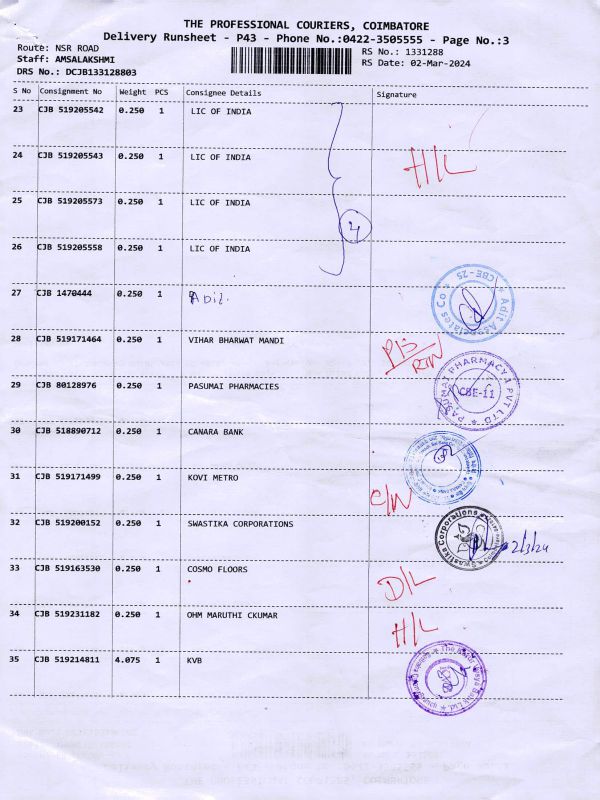 THE PROFESSIONAL COURIERS, COIMBATORE
Delivery Runsheet - P43 - Phone No.:0422-3505555 - Page No.:3
Route: NSR ROAD
RS No.: 1331288
Staff: AMSALAKSHMI
RS Date: 02-Mar-2024
DRS No.: DCJB133128803
S No Consignment No Weight PCS Consignee Details Signature
23 CJB 519205542 0.250 1 LIC OF INDIA
24 CJB 519205543 0.250 1 LIC OF INDIA H/L
25 CJB 519205573 0.250 1 LIC OF INDIA
4
26 CJB 519205558 0.250 1 LIC OF INDIA
27 CJB 1470444 0.250 1 Adit. Adit Associates Co ★ CBE-25 ★
28 CJB 519171464 0.250 1 VIHAR BHARWAT MANDI
29 CJB 80128976 0.250 1 PASUMAI PHARMACIES PASUMAI PHARMACYA PVT LTD ★ CBE-11
30 CJB 518890712 0.250 1 CANARA BANK
31 CJB 519171499 0.250 1 KOVI METRO
32 CJB 519200152 0.250 1 SWASTIKA CORPORATIONS Swastika Corporations 2/3/24
33 CJB 519163530 0.250 1 COSMO FLOORS D/L
34 CJB 519231182 0.250 1 OHM MARUTHI CKUMAR H/L
35 CJB 519214811 4.075 1 KVB